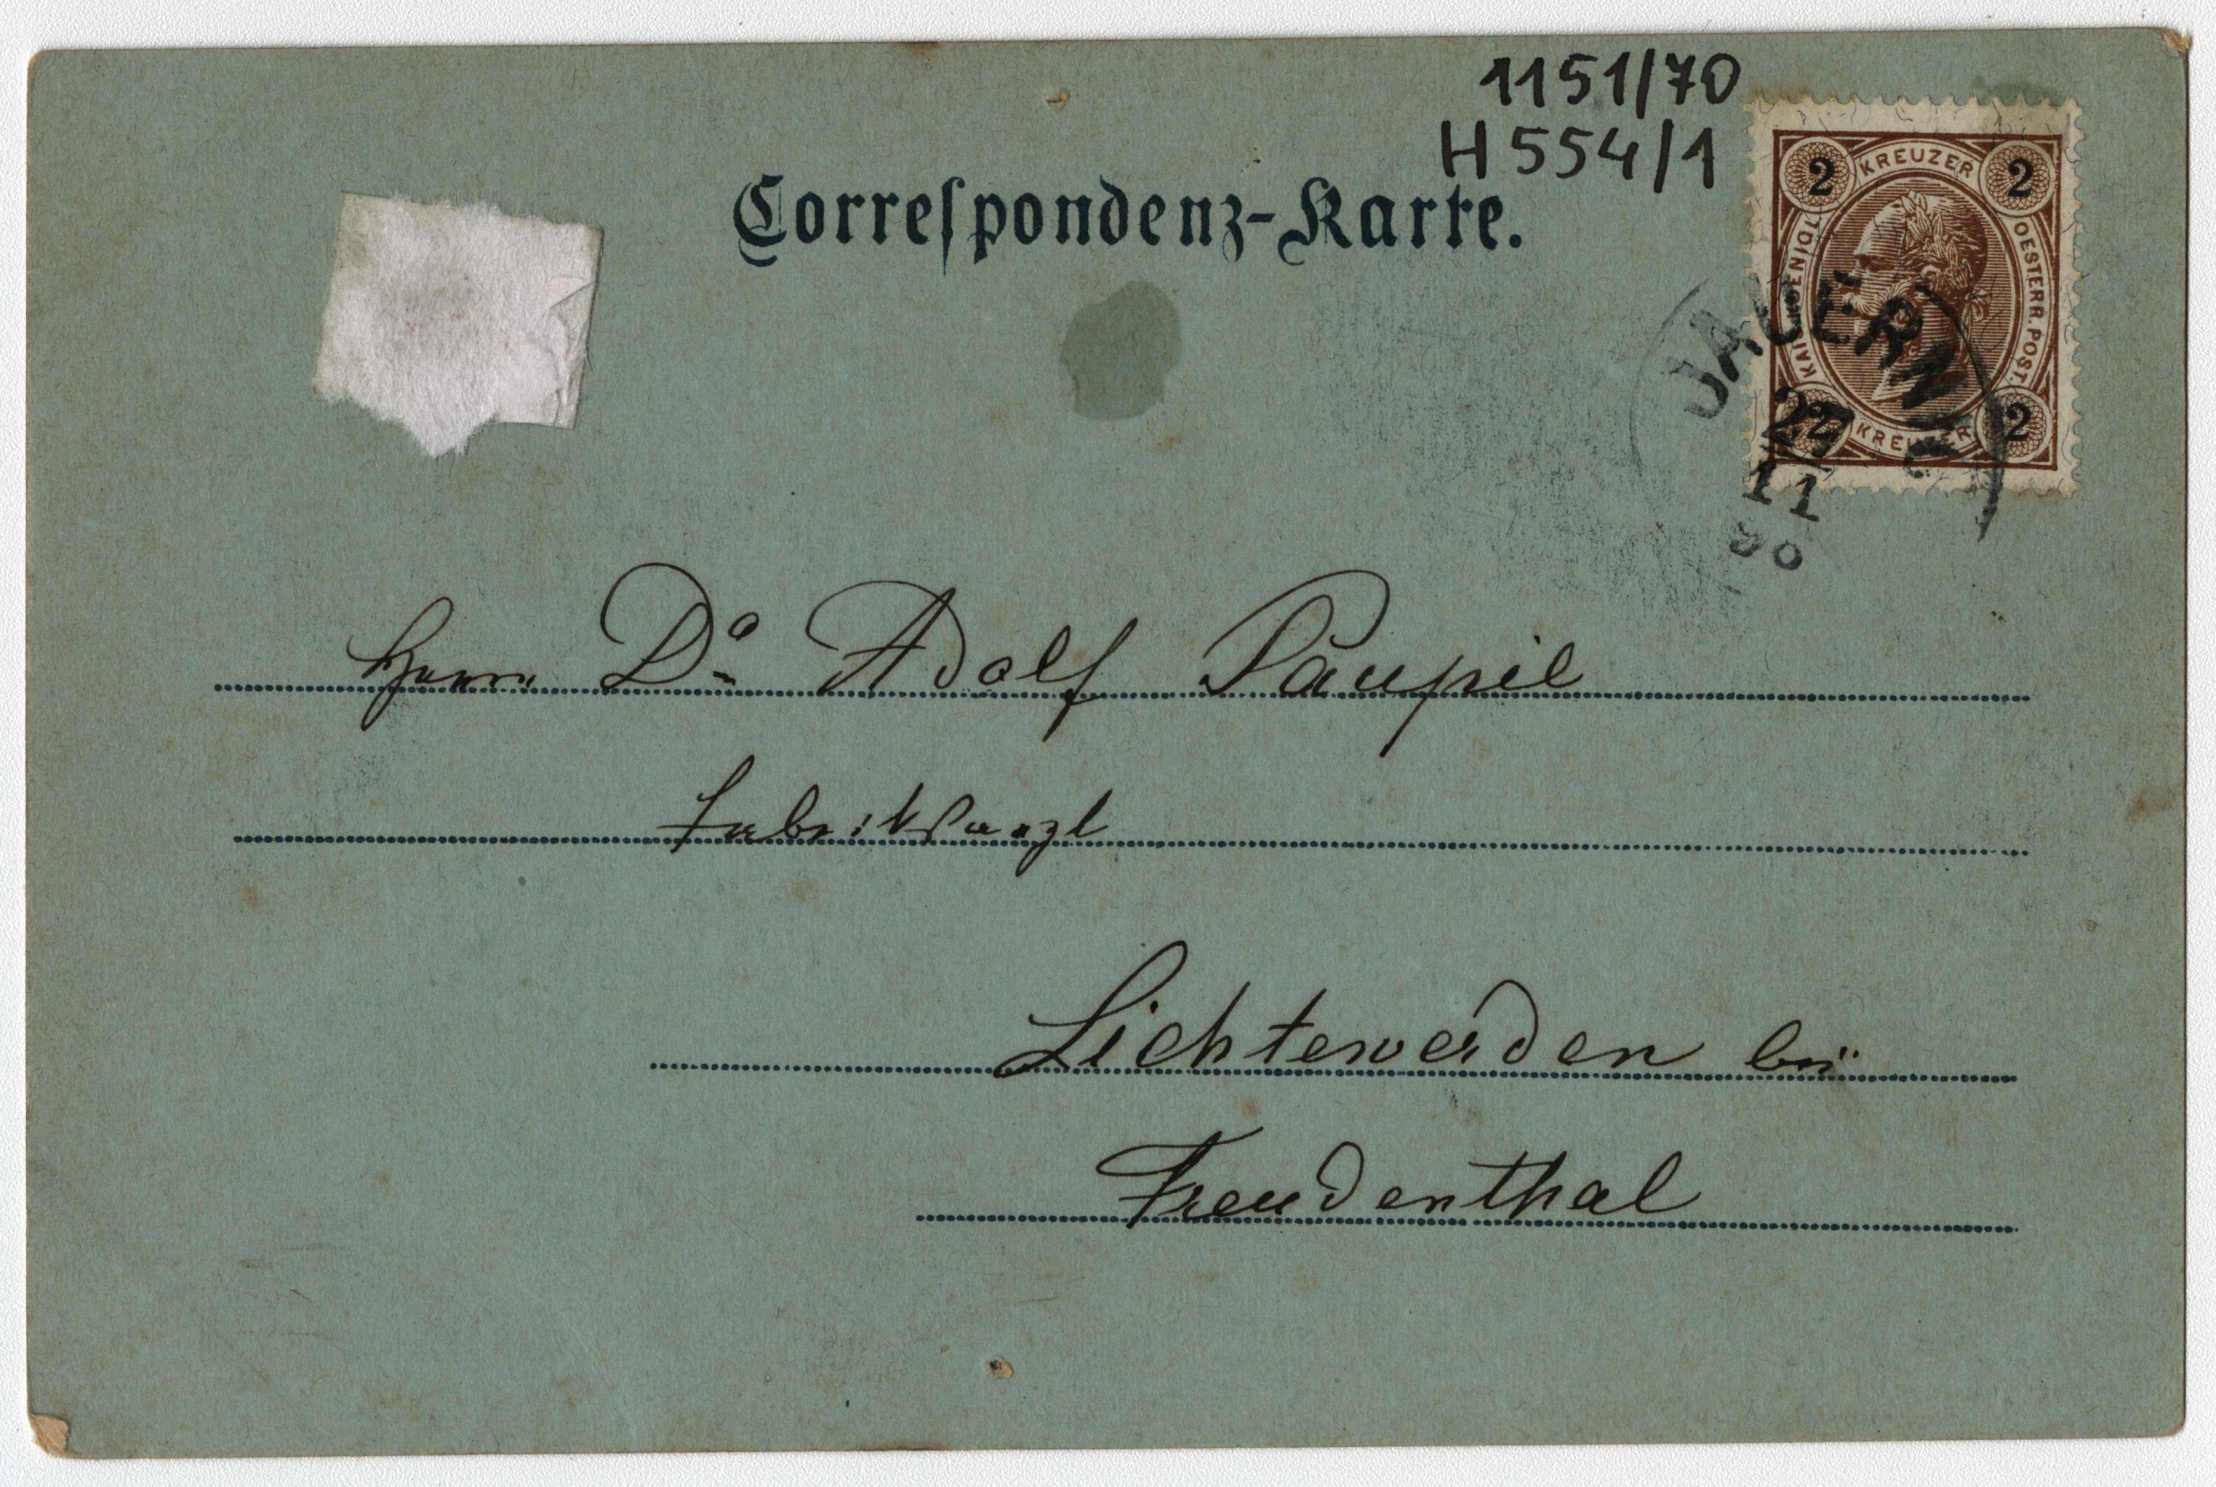 1151/70
H 554/1
Correspondenz-Karte.
2 KREUZER 2
KAIS. KOENIGL. OESTERR. POST.
2 KREUZER 2
JAUERNIG
27
11
98
Herrn Dr. Adolf Paupil
Fabriksarzt
Lichtewerden bei
Freudenthal